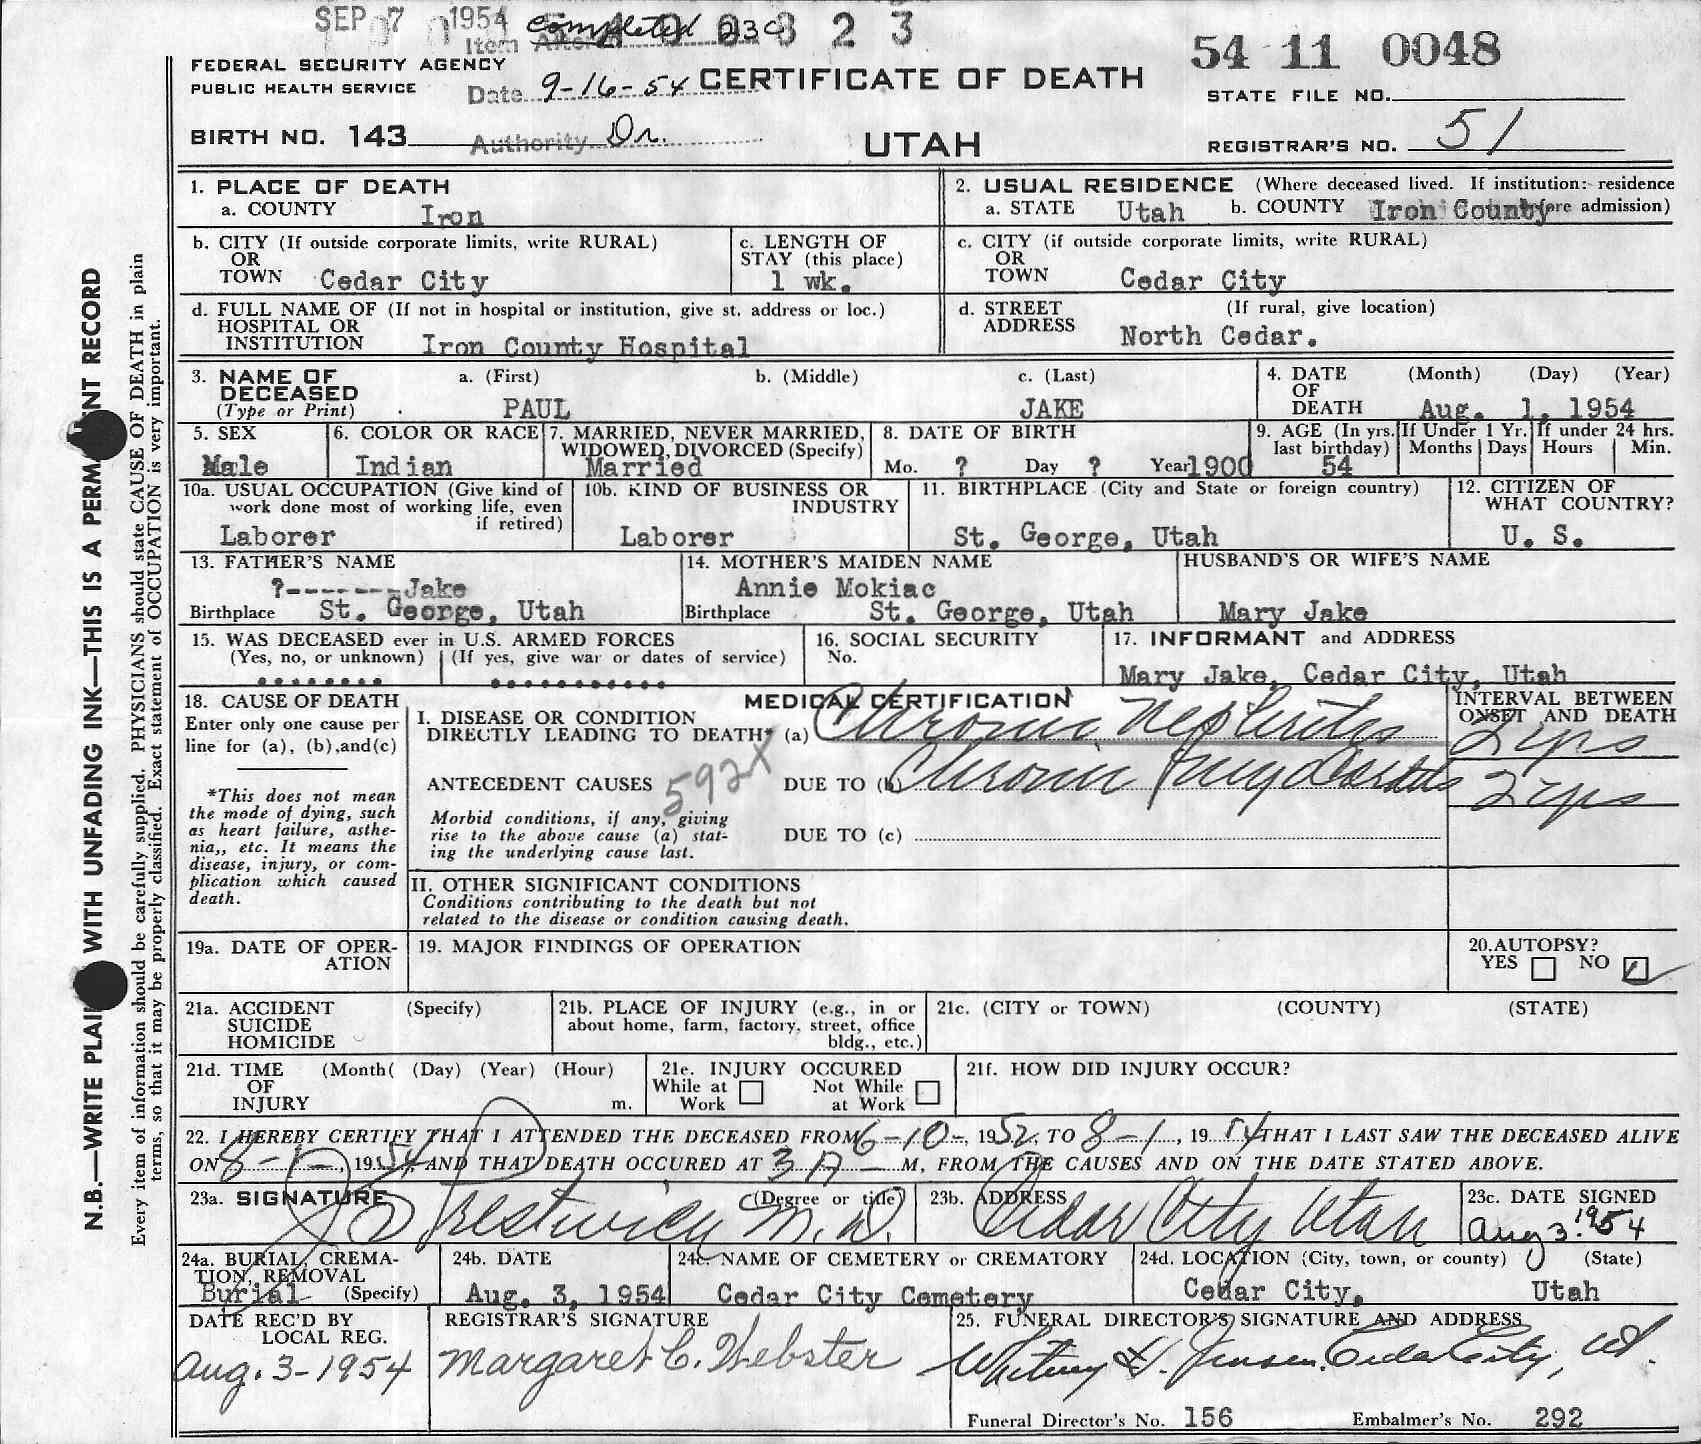 SEP 7 1954 completed 23c 8 2 3
Item
54 11 0048
FEDERAL SECURITY AGENCY
PUBLIC HEALTH SERVICE
Date 9-16-54
CERTIFICATE OF DEATH
STATE FILE NO.
BIRTH NO. 143
Authority Dr.
UTAH
REGISTRAR'S NO. 51
N.B.—WRITE PLAI WITH UNFADING INK—THIS IS A PERMA NT RECORD
Every item of information should be carefully supplied. PHYSICIANS should state CAUSE OF DEATH in plain
terms, so that it may be properly classified. Exact statement of OCCUPATION is very important.
1. PLACE OF DEATH
a. COUNTY Iron
2. USUAL RESIDENCE (Where deceased lived. If institution: residence
a. STATE Utah b. COUNTY Iron County ore admission)
b. CITY (If outside corporate limits, write RURAL)
OR
TOWN Cedar City
c. LENGTH OF
STAY (this place)
1 wk.
c. CITY (if outside corporate limits, write RURAL)
OR
TOWN Cedar City
d. FULL NAME OF (If not in hospital or institution, give st. address or loc.)
HOSPITAL OR
INSTITUTION Iron County Hospital
d. STREET (If rural, give location)
ADDRESS North Cedar.
3. NAME OF a. (First) b. (Middle) c. (Last)
DECEASED
(Type or Print) PAUL JAKE
4. DATE (Month) (Day) (Year)
OF
DEATH Aug. 1, 1954
5. SEX
Male
6. COLOR OR RACE
Indian
7. MARRIED, NEVER MARRIED,
WIDOWED, DIVORCED (Specify)
Married
8. DATE OF BIRTH
Mo. ? Day ? Year 1900
9. AGE (In yrs.
last birthday)
54
If Under 1 Yr.
Months Days
If under 24 hrs.
Hours Min.
10a. USUAL OCCUPATION (Give kind of
work done most of working life, even
if retired)
Laborer
10b. KIND OF BUSINESS OR
INDUSTRY
Laborer
11. BIRTHPLACE (City and State or foreign country)
St. George, Utah
12. CITIZEN OF
WHAT COUNTRY?
U. S.
13. FATHER'S NAME
?-------Jake
Birthplace St. George, Utah
14. MOTHER'S MAIDEN NAME
Annie Mokiac
Birthplace St. George, Utah
HUSBAND'S OR WIFE'S NAME
Mary Jake
15. WAS DECEASED ever in U.S. ARMED FORCES
(Yes, no, or unknown) (If yes, give war or dates of service)
16. SOCIAL SECURITY
No.
17. INFORMANT and ADDRESS
Mary Jake, Cedar City, Utah
18. CAUSE OF DEATH
Enter only one cause per
line for (a), (b), and (c)
*This does not mean
the mode of dying, such
as heart failure, asthe-
nia,, etc. It means the
disease, injury, or com-
plication which caused
death.
MEDICAL CERTIFICATION
I. DISEASE OR CONDITION
DIRECTLY LEADING TO DEATH* (a) Chronic Nephritis
ANTECEDENT CAUSES 592X DUE TO (b) Chronic
Morbid conditions, if any, giving
rise to the above cause (a) stat-
ing the underlying cause last.
DUE TO (c)
INTERVAL BETWEEN
ONSET AND DEATH
2 yrs
2 yrs
II. OTHER SIGNIFICANT CONDITIONS
Conditions contributing to the death but not
related to the disease or condition causing death.
19a. DATE OF OPER-
ATION
19. MAJOR FINDINGS OF OPERATION
20. AUTOPSY?
YES NO
21a. ACCIDENT (Specify)
SUICIDE
HOMICIDE
21b. PLACE OF INJURY (e.g., in or
about home, farm, factory, street, office
bldg., etc.)
21c. (CITY or TOWN) (COUNTY) (STATE)
21d. TIME (Month( (Day) (Year) (Hour)
OF
INJURY m.
21e. INJURY OCCURED
While at Not While
Work at Work
21f. HOW DID INJURY OCCUR?
22. I HEREBY CERTIFY THAT I ATTENDED THE DECEASED FROM 6-10-, 1952, TO 8-1, 1954 THAT I LAST SAW THE DECEASED ALIVE
ON 8-1-, 1954 AND THAT DEATH OCCURED AT 3 A M, FROM THE CAUSES AND ON THE DATE STATED ABOVE.
23a. SIGNATURE (Degree or title)
Prestwich M.D.
23b. ADDRESS
Cedar City Utah
23c. DATE SIGNED
Aug 3, 1954
24a. BURIAL, CREMA-
TION, REMOVAL
Burial (Specify)
24b. DATE
Aug. 3, 1954
24c. NAME OF CEMETERY or CREMATORY
Cedar City Cemetery
24d. LOCATION (City, town, or county) (State)
Cedar City, Utah
DATE REC'D BY
LOCAL REG.
Aug. 3-1954
REGISTRAR'S SIGNATURE
Margaret C. Webster
25. FUNERAL DIRECTOR'S SIGNATURE AND ADDRESS
Whitney H. Jensen. Cedar City, Ut.
Funeral Director's No. 156 Embalmer's No. 292